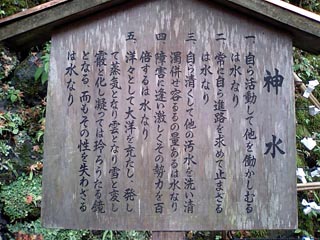 神水
一 自ら活動して他を働かしむる
は水なり
二 常に自ら進路を求めて止まざる
は水なり
三 自ら清くして他の汚水を洗い清
濁併せ容るるの量あるは水なり
四 障害に逢い激しくその勢力を百
倍するは水なり
五 洋々として大洋を充たし、発し
て蒸気となり雲となり雪と変じ
霰と化し凝っては玲ろうたる鏡
となる、而もその性を失わざる
は水なり